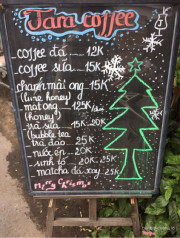 Tara coffee
coffee đá ... 12K
coffee sữa ... 15K
chanh mải ong ... 15K
(lime honey)
mật ong ... 12K
(honey)
trà sữa ... 15K - 20K
(bubble tea
trà đào ... 25K
nước ép ... 20K
sinh tố ... 20K - 25K
matcha đá xay ... 25K